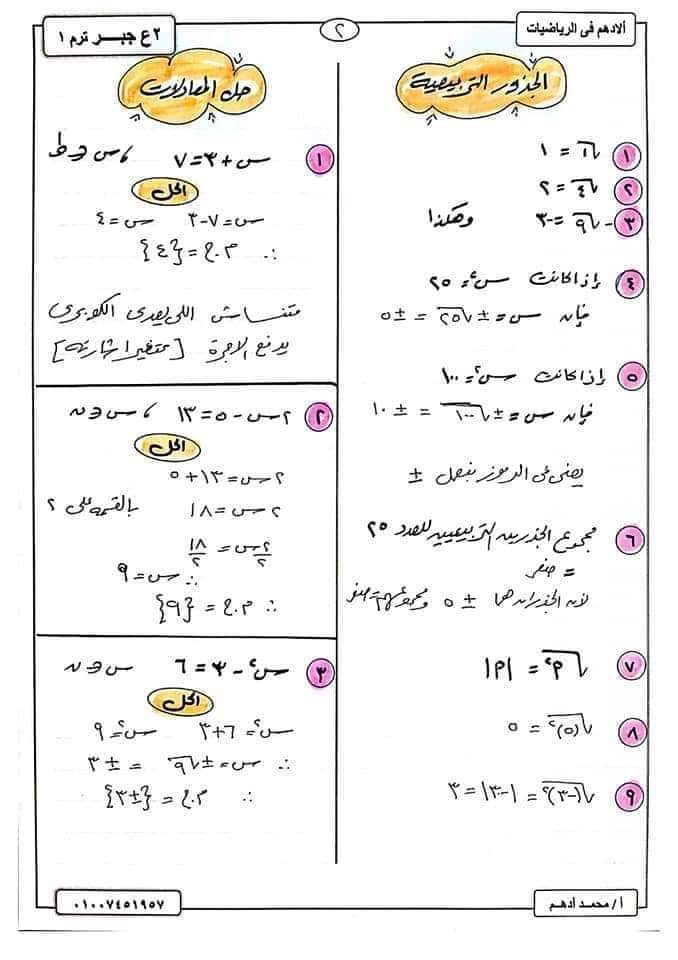 ألادهم فى الرياضيات
٢
٢ع جبر ترم ١
الجذور التربيعية
١ √١ = ١
٢ √٤ = ٢
٣ -√٩ = -٣ وهكذا
٤ إذا كانت س٢ = ٢٥
فإن س = ±√٢٥ = ±٥
٥ إذا كانت س٢ = ١٠٠
فإن س = ±√١٠٠ = ±١٠
يعنى فى الرموز بنعمل ±
٦ مجموع الجذرين التربيعيين للعدد ٢٥
= صفر
لأن الجذران هما ±٥ ومجموعهم صفر
٧ √م٢ = |م|
٨ √(٥)٢ = ٥
٩ √(-٣)٢ = |-٣| = ٣
حل المعادلات
١ س + ٣ = ٧ ، س ∈ ط
الحل
س = ٧ - ٣ س = ٤
∴ م.ح = {٤}
متنساش اللى يعدى الكوبرى
يدفع الاجرة [بتغير اشارته]
٢ ٢س - ٥ = ١٣ ، س ∈ ن
الحل
٢س = ١٣ + ٥
٢س = ١٨ بالقسمة على ٢
٢س/٢ = ١٨/٢
∴ س = ٩
∴ م.ح = {٩}
٣ س٢ - ٣ = ٦ س ∈ ن
الحل
س٢ = ٦ + ٣ س٢ = ٩
∴ س = ±√٩ = ±٣
∴ م.ح = {±٣}
أ/ محمد أدهم
٠١٠٠٧٤٥١٩٥٧